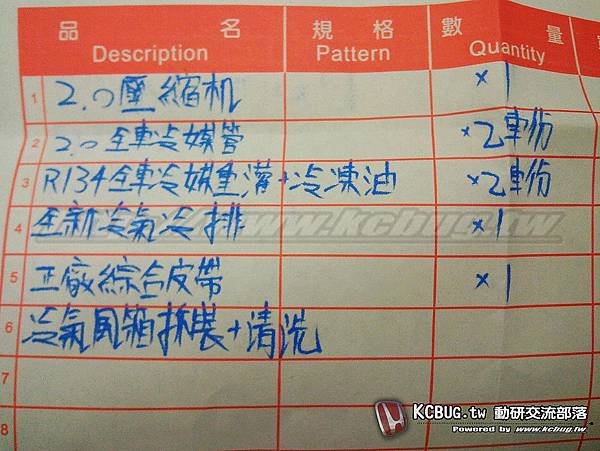 品名 規格 數量
Description Pattern Quantity
1 2.0壓縮机 ×1
2 2.0全車冷媒管 ×2車份
3 R134全車冷媒重灌+冷凍油 ×2車份
4 全新冷氣冷排 ×1
5 正廠綜合皮帶 ×1
6 冷氣風箱拆裝+清洗
7
8
www.kcbug.tw
KCBUG.tw 動研交流部落
Powered by www.kcbug.tw